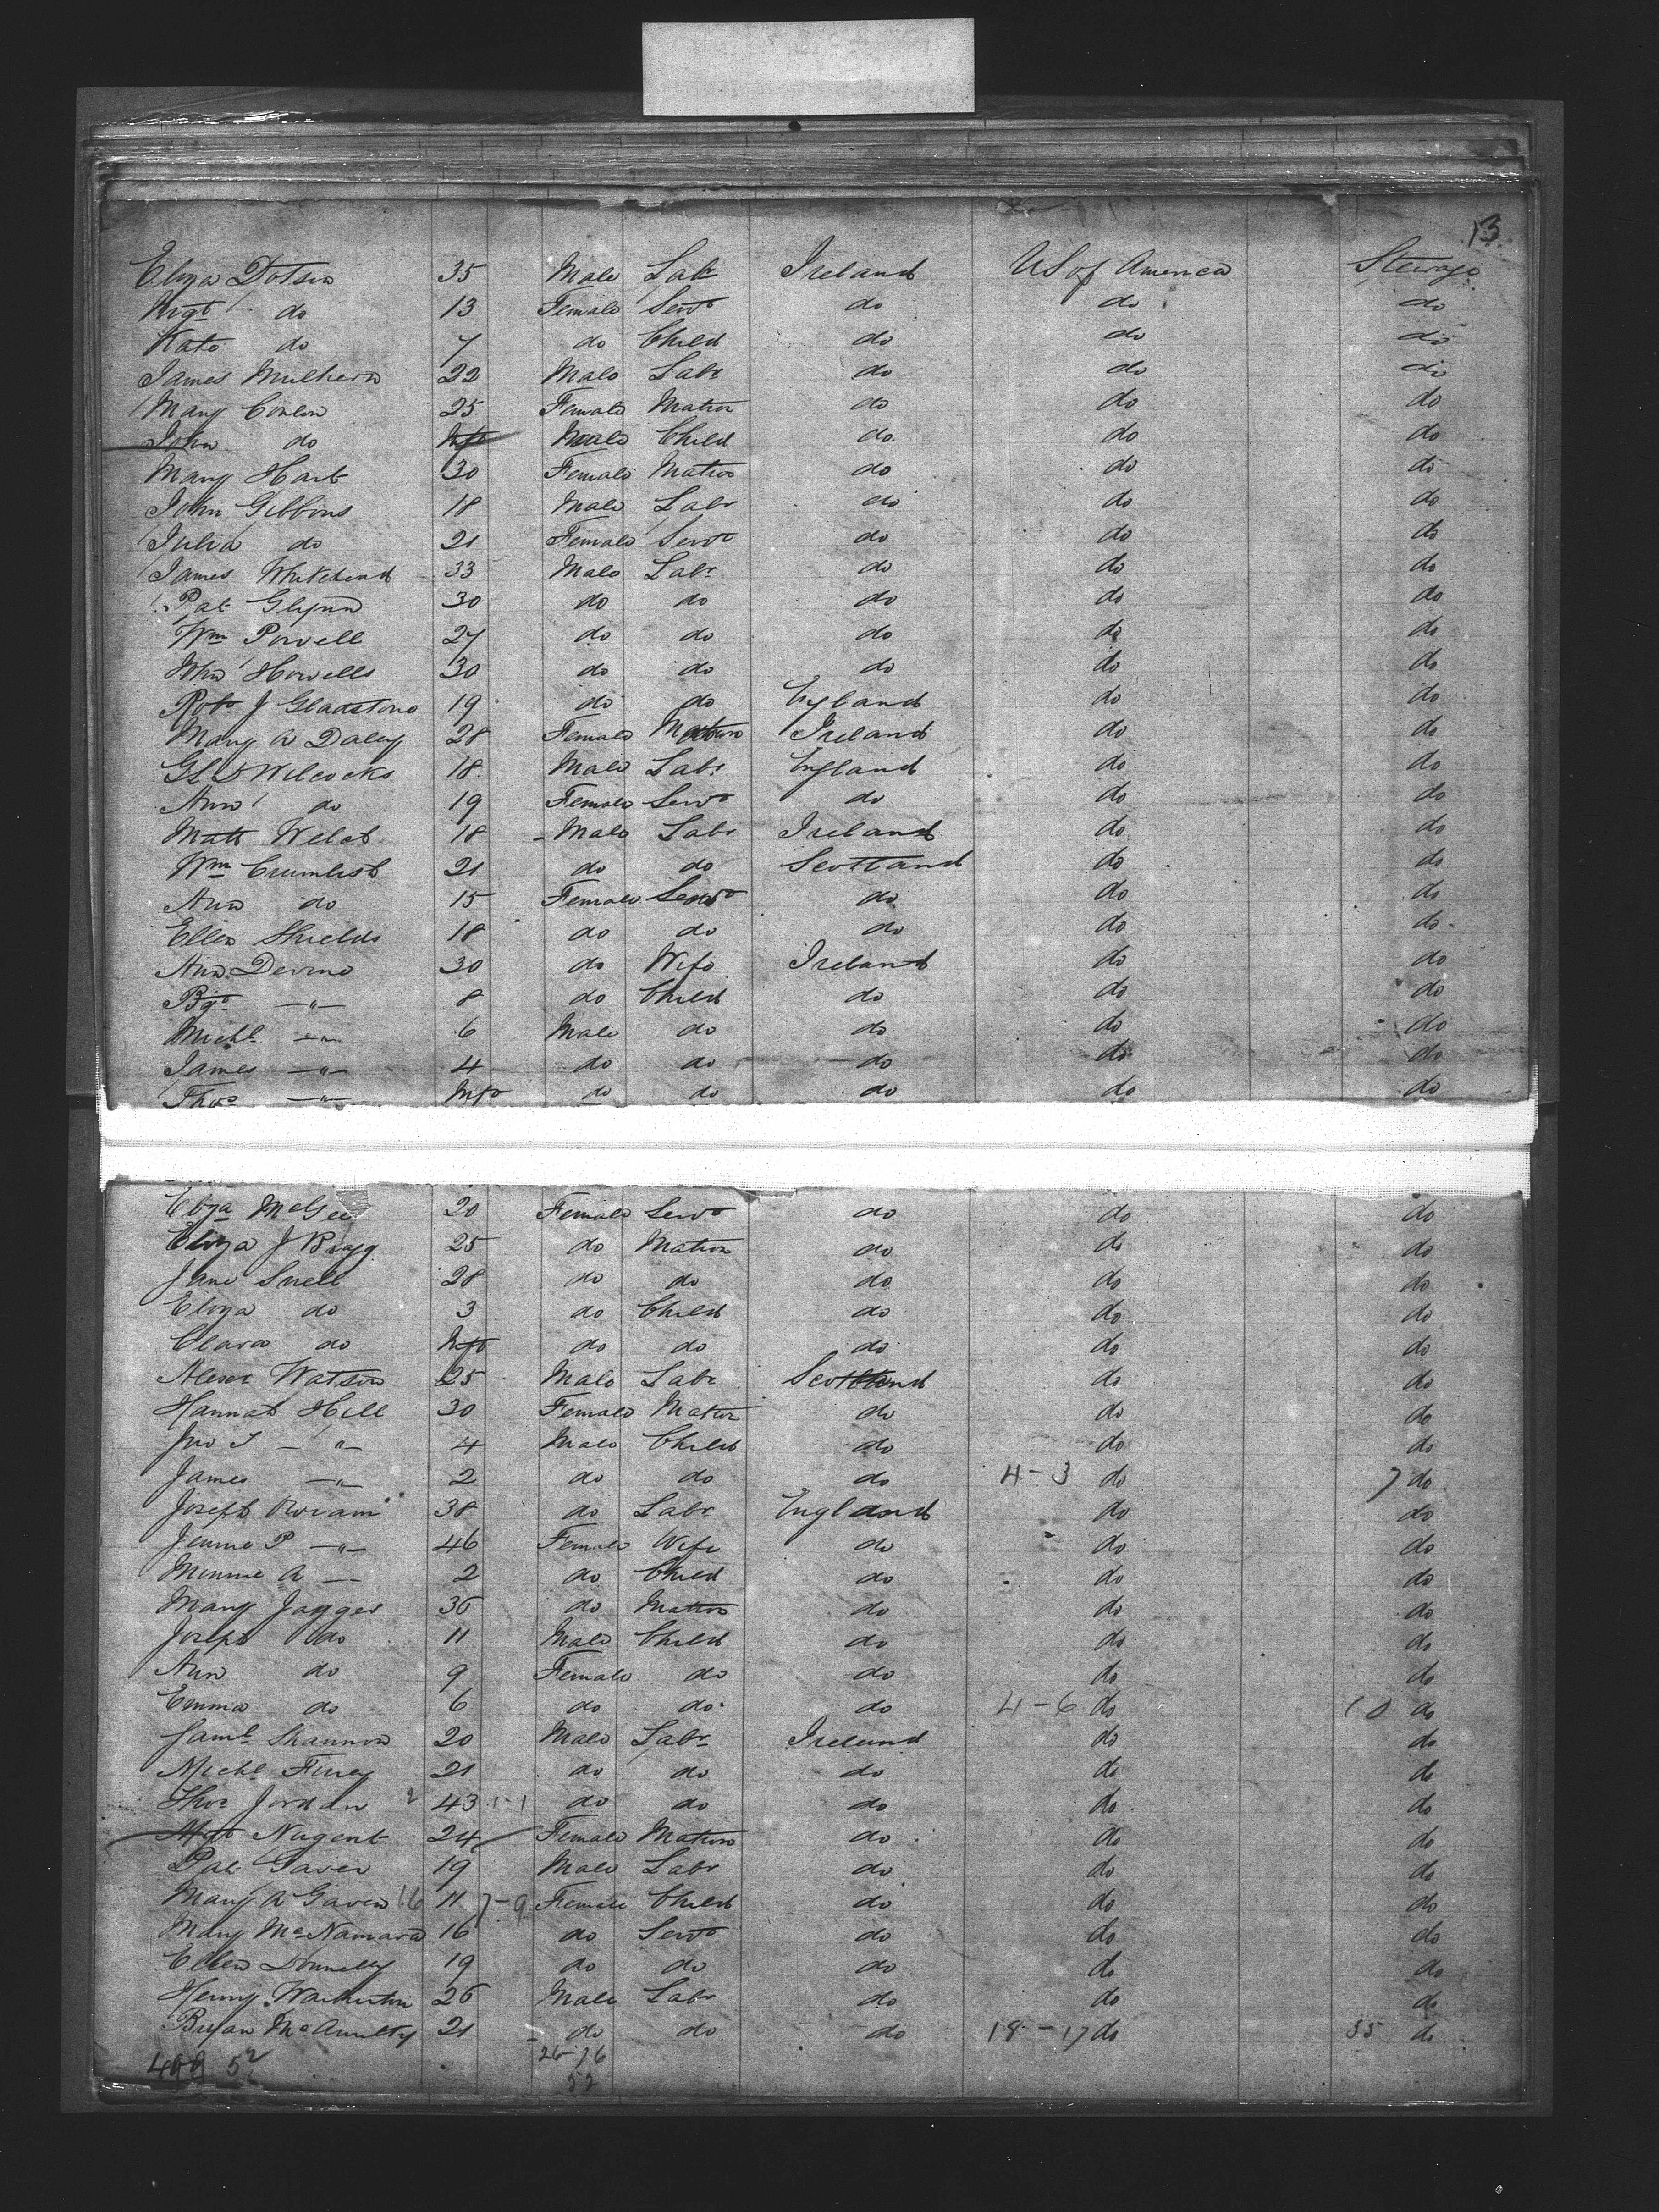 13
Eliza Dotson 35 Male Labr Ireland US of America Steerage
Mgt do 13 Female Servt do do do
Kate do 7 do Child do do do
James Mulhern 22 Male Labr do do do
Mary Conlon 25 Female Matron do do do
John do Inft Male Child do do do
Mary Hart 30 Female Matron do do do
John Gibbons 18 Male Labr do do do
Julia do 21 Female Servt do do do
James Whitehead 33 Male Labr do do do
Pat Glynn 30 do do do do do
Wm Powell 27 do do do do do
John Howells 30 do do do do do
Robt J Gladstone 19 do do England do do
Mary A Daley 28 Female Matron Ireland do do
Wilcocks 18 Male Labr England do do
Ann do 19 Female Servt do do do
Matt Welch 18 Male Labr Ireland do do
Wm Crumlish 21 do do Scotland do do
Ann do 15 Female Servt do do do
Ellen Shields 18 do do do do do
Ann Devine 30 do Wife Ireland do do
Bgt —"— 8 do Child do do do
Michl —"— 6 Male do do do do
James —"— 4 do do do do do
Thos —"— Inft do do do do do
Eliza McGee 20 Female Servt do do do
Eliza J Bragg 25 do Matron do do do
Jane Snell 28 do do do do do
Eliza do 3 do Child do do do
Clara do Inft do do do do do
Alexr Watson 25 Male Labr Scotland do do
Hannah Hill 30 Female Matron do do do
Jno S —"— 4 Male Child do do do
James —"— 2 do do do 4-3 do 7 do
Joseph 38 do Labr England do do
Jennie P —"— 46 Female Wife do do do
Minnie A — 2 do Child do do do
Mary Jagger 36 do Matron do do do
Joseph do 11 Male Child do do do
Ann do 9 Female do do do do
Emma do 6 do do do 4-6 do 10 do
Saml Shannon 20 Male Labr Ireland do do
Michl Furey 21 do do do do do
Thos Jordan 2 43 1-1 do do do do do
Mgt Nugent 24 Female Matron do do do
Pat Gaven 19 Male Labr do do do
Mary A Gaven 16 11 7-9 Female Child do do do
Mary McNamara 16 do Servt do do do
Ellen Donnelly 19 do do do do do
Henry Warburton 26 Male Labr do do do
Bryan McAnulty 21 do do do 18-17 do 35 do
499 52 26 26
52